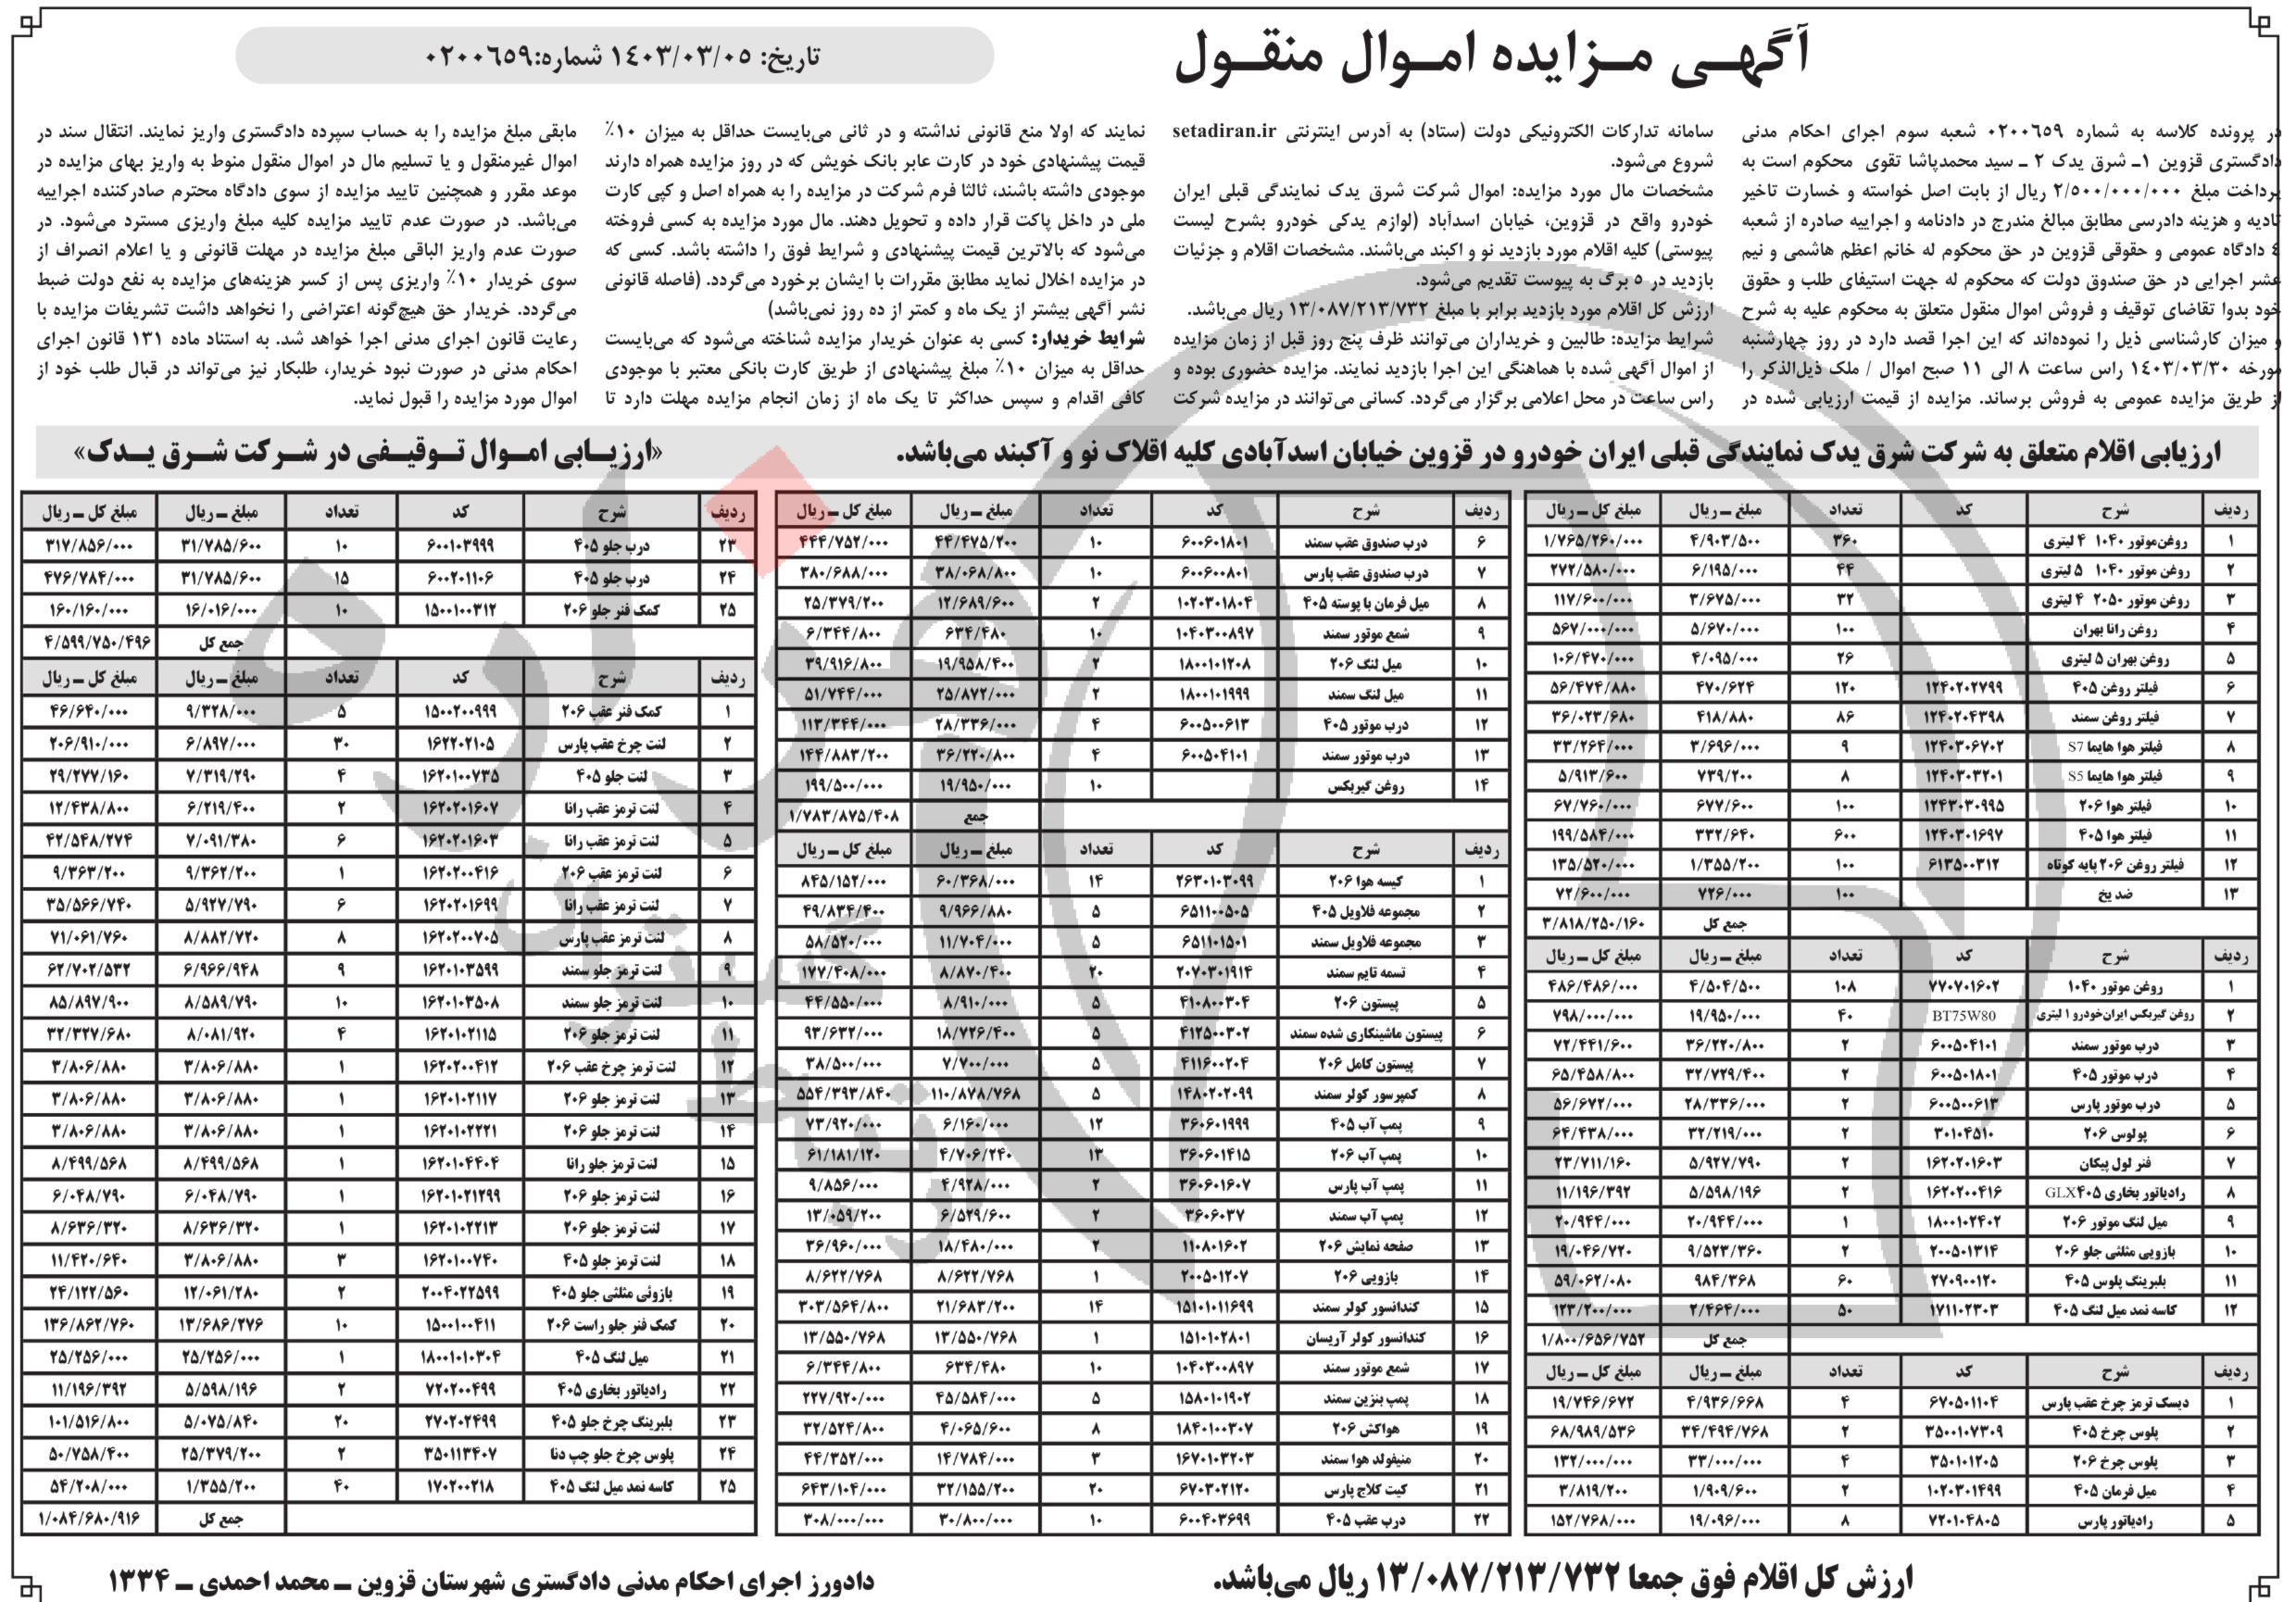 آگهـی مـزایده امـوال منقـول
تاریخ: ۱۴۰۳/۰۳/۰۵ شماره:۰۲۰۰۶۵۹
در پرونده کلاسه به شماره ۰۲۰۰۶۵۹ شعبه سوم اجرای احکام مدنی
دادگستری قزوین ۱ـ شرق یدک ۲ ـ سید محمدپاشا تقوی محکوم است به
پرداخت مبلغ ۲/۵۰۰/۰۰۰/۰۰۰ ریال از بابت اصل خواسته و خسارت تاخیر
تادیه و هزینه دادرسی مطابق مبالغ مندرج در دادنامه و اجراییه صادره از شعبه
۴ دادگاه عمومی و حقوقی قزوین در حق محکوم له خانم اعظم هاشمی و نیم
عشر اجرایی در حق صندوق دولت که محکوم له جهت استیفای طلب و حقوق
خود بدوا تقاضای توقیف و فروش اموال منقول متعلق به محکوم علیه به شرح
و میزان کارشناسی ذیل را نموده‌اند که این اجرا قصد دارد در روز چهارشنبه
مورخه ۱۴۰۳/۰۳/۳۰ راس ساعت ۸ الی ۱۱ صبح اموال / ملک ذیل‌الذکر را
از طریق مزایده عمومی به فروش برساند. مزایده از قیمت ارزیابی شده در
سامانه تدارکات الکترونیکی دولت (ستاد) به آدرس اینترنتی setadiran.ir
شروع می‌شود.
مشخصات مال مورد مزایده: اموال شرکت شرق یدک نمایندگی قبلی ایران
خودرو واقع در قزوین، خیابان اسدآباد (لوازم یدکی خودرو بشرح لیست
پیوستی) کلیه اقلام مورد بازدید نو و اکبند می‌باشند. مشخصات اقلام و جزئیات
بازدید در ۵ برگ به پیوست تقدیم می‌شود.
ارزش کل اقلام مورد بازدید برابر با مبلغ ۱۳/۰۸۷/۲۱۳/۷۳۲ ریال می‌باشد.
شرایط مزایده: طالبین و خریداران می‌توانند ظرف پنج روز قبل از زمان مزایده
از اموال آگهی شده با هماهنگی این اجرا بازدید نمایند. مزایده حضوری بوده و
راس ساعت در محل اعلامی برگزار می‌گردد. کسانی می‌توانند در مزایده شرکت
نمایند که اولا منع قانونی نداشته و در ثانی می‌بایست حداقل به میزان ۱۰٪
قیمت پیشنهادی خود در کارت عابر بانک خویش که در روز مزایده همراه دارند
موجودی داشته باشند، ثالثا فرم شرکت در مزایده را به همراه اصل و کپی کارت
ملی در داخل پاکت قرار داده و تحویل دهند. مال مورد مزایده به کسی فروخته
می‌شود که بالاترین قیمت پیشنهادی و شرایط فوق را داشته باشد. کسی که
در مزایده اخلال نماید مطابق مقررات با ایشان برخورد می‌گردد. (فاصله قانونی
نشر آگهی بیشتر از یک ماه و کمتر از ده روز نمی‌باشد)
شرایط خریدار: کسی به عنوان خریدار مزایده شناخته می‌شود که می‌بایست
حداقل به میزان ۱۰٪ مبلغ پیشنهادی از طریق کارت بانکی معتبر با موجودی
کافی اقدام و سپس حداکثر تا یک ماه از زمان انجام مزایده مهلت دارد تا
مابقی مبلغ مزایده را به حساب سپرده دادگستری واریز نمایند. انتقال سند در
اموال غیرمنقول و یا تسلیم مال در اموال منقول منوط به واریز بهای مزایده در
موعد مقرر و همچنین تایید مزایده از سوی دادگاه محترم صادرکننده اجراییه
می‌باشد. در صورت عدم تایید مزایده کلیه مبلغ واریزی مسترد می‌شود. در
صورت عدم واریز الباقی مبلغ مزایده در مهلت قانونی و یا اعلام انصراف از
سوی خریدار ۱۰٪ واریزی پس از کسر هزینه‌های مزایده به نفع دولت ضبط
می‌گردد. خریدار حق هیچ‌گونه اعتراضی را نخواهد داشت تشریفات مزایده با
رعایت قانون اجرای مدنی اجرا خواهد شد. به استناد ماده ۱۳۱ قانون اجرای
احکام مدنی در صورت نبود خریدار، طلبکار نیز می‌تواند در قبال طلب خود از
اموال مورد مزایده را قبول نماید.
ارزیابی اقلام متعلق به شرکت شرق یدک نمایندگی قبلی ایران خودرو در قزوین خیابان اسدآبادی کلیه اقلاک نو و آکبند می‌باشد.
«ارزیـابی امـوال تـوقیـفی در شـرکت شـرق یـدک»
ردیف شرح کد تعداد مبلغ ـ ریال مبلغ کل ـ ریال
۱ روغن‌موتور ۱۰۴۰ ۴ لیتری ۳۶۰ ۴/۹۰۳/۵۰۰ ۱/۷۶۵/۲۶۰/۰۰۰
۲ روغن موتور ۱۰۴۰ ۵ لیتری ۴۴ ۶/۱۹۵/۰۰۰ ۲۷۲/۵۸۰/۰۰۰
۳ روغن موتور ۲۰۵۰ ۴ لیتری ۳۲ ۳/۶۷۵/۰۰۰ ۱۱۷/۶۰۰/۰۰۰
۴ روغن رانا بهران ۱۰۰ ۵/۶۷۰/۰۰۰ ۵۶۷/۰۰۰/۰۰۰
۵ روغن بهران ۵ لیتری ۲۶ ۴/۰۹۵/۰۰۰ ۱۰۶/۴۷۰/۰۰۰
۶ فیلتر روغن ۴۰۵ ۱۲۴۰۲۰۲۷۹۹ ۱۲۰ ۴۷۰/۶۲۴ ۵۶/۴۷۴/۸۸۰
۷ فیلتر روغن سمند ۱۲۴۰۲۰۴۳۹۸ ۸۶ ۴۱۸/۸۸۰ ۳۶/۰۲۳/۶۸۰
۸ فیلتر هوا هایما S7 ۱۲۴۰۳۰۶۷۰۲ ۹ ۳/۶۹۶/۰۰۰ ۳۳/۲۶۴/۰۰۰
۹ فیلتر هوا هایما S5 ۱۲۴۰۳۰۳۲۰۱ ۸ ۷۳۹/۲۰۰ ۵/۹۱۳/۶۰۰
۱۰ فیلتر هوا ۲۰۶ ۱۲۴۳۰۳۰۹۹۵ ۱۰۰ ۶۷۷/۶۰۰ ۶۷/۷۶۰/۰۰۰
۱۱ فیلتر هوا ۴۰۵ ۱۲۴۰۳۰۱۶۹۷ ۶۰۰ ۳۳۲/۶۴۰ ۱۹۹/۵۸۴/۰۰۰
۱۲ فیلتر روغن ۲۰۶ پایه کوتاه ۶۱۳۵۰۰۳۱۲ ۱۰۰ ۱/۳۵۵/۲۰۰ ۱۳۵/۵۲۰/۰۰۰
۱۳ ضد یخ ۱۰۰ ۷۲۶/۰۰۰ ۷۲/۶۰۰/۰۰۰
جمع کل ۳/۸۱۸/۲۵۰/۱۶۰
ردیف شرح کد تعداد مبلغ ـ ریال مبلغ کل ـ ریال
۱ روغن موتور ۱۰۴۰ ۷۷۰۷۰۱۶۰۲ ۱۰۸ ۴/۵۰۴/۵۰۰ ۴۸۶/۴۸۶/۰۰۰
۲ روغن گیربکس ایران‌خودرو ۱ لیتری BT75W80 ۴۰ ۱۹/۹۵۰/۰۰۰ ۷۹۸/۰۰۰/۰۰۰
۳ درب موتور سمند ۶۰۰۵۰۴۱۰۱ ۲ ۳۶/۲۲۰/۸۰۰ ۷۲/۴۴۱/۶۰۰
۴ درب موتور ۴۰۵ ۶۰۰۵۰۱۸۰۱ ۲ ۳۲/۷۲۹/۴۰۰ ۶۵/۴۵۸/۸۰۰
۵ درب موتور پارس ۶۰۰۵۰۰۶۱۳ ۲ ۲۸/۳۳۶/۰۰۰ ۵۶/۶۷۲/۰۰۰
۶ پولوس ۲۰۶ ۳۰۱۰۴۵۱۰ ۲ ۳۲/۲۱۹/۰۰۰ ۶۴/۴۳۸/۰۰۰
۷ فنر لول پیکان ۱۶۲۰۲۰۱۶۰۳ ۲ ۵/۹۲۷/۷۹۰ ۲۳/۷۱۱/۱۶۰
۸ رادیاتور بخاری GLX۴۰۵ ۱۶۲۰۲۰۰۴۱۶ ۲ ۵/۵۹۸/۱۹۶ ۱۱/۱۹۶/۳۹۲
۹ میل لنگ موتور ۲۰۶ ۱۸۰۰۱۰۲۴۰۲ ۱ ۲۰/۹۴۴/۰۰۰ ۲۰/۹۴۴/۰۰۰
۱۰ بازویی مثلثی جلو ۲۰۶ ۲۰۰۵۰۱۳۱۴ ۲ ۹/۵۲۳/۳۶۰ ۱۹/۰۴۶/۷۲۰
۱۱ بلبرینگ پلوس ۴۰۵ ۲۷۰۹۰۰۱۲۰ ۶۰ ۹۸۴/۳۶۸ ۵۹/۰۶۲/۰۸۰
۱۲ کاسه نمد میل لنگ ۴۰۵ ۱۷۱۱۰۲۳۰۳ ۵۰ ۲/۴۶۴/۰۰۰ ۱۲۳/۲۰۰/۰۰۰
جمع کل ۱/۸۰۰/۶۵۶/۷۵۲
ردیف شرح کد تعداد مبلغ ـ ریال مبلغ کل ـ ریال
۱ دیسک ترمز چرخ عقب پارس ۶۷۰۵۰۱۱۰۴ ۴ ۴/۹۳۶/۶۶۸ ۱۹/۷۴۶/۶۷۲
۲ پلوس چرخ ۴۰۵ ۳۵۰۰۱۰۷۳۰۹ ۲ ۳۴/۴۹۴/۷۶۸ ۶۸/۹۸۹/۵۳۶
۳ پلوس چرخ ۲۰۶ ۳۵۰۱۰۱۲۰۵ ۴ ۳۳/۰۰۰/۰۰۰ ۱۳۲/۰۰۰/۰۰۰
۴ میل فرمان ۴۰۵ ۱۰۲۰۳۰۱۴۹۹ ۲ ۱/۹۰۹/۶۰۰ ۳/۸۱۹/۲۰۰
۵ رادیاتور پارس ۷۲۰۱۰۴۸۰۵ ۸ ۱۹/۰۹۶/۰۰۰ ۱۵۲/۷۶۸/۰۰۰
ردیف شرح کد تعداد مبلغ ـ ریال مبلغ کل ـ ریال
۶ درب صندوق عقب سمند ۶۰۰۶۰۱۸۰۱ ۱۰ ۴۴/۴۷۵/۲۰۰ ۴۴۴/۷۵۲/۰۰۰
۷ درب صندوق عقب پارس ۶۰۰۶۰۰۸۰۱ ۱۰ ۳۸/۰۶۸/۸۰۰ ۳۸۰/۶۸۸/۰۰۰
۸ میل فرمان با پوسته ۴۰۵ ۱۰۲۰۳۰۱۸۰۴ ۲ ۱۲/۶۸۹/۶۰۰ ۲۵/۳۷۹/۲۰۰
۹ شمع موتور سمند ۱۰۴۰۳۰۰۸۹۷ ۱۰ ۶۳۴/۴۸۰ ۶/۳۴۴/۸۰۰
۱۰ میل لنگ ۲۰۶ ۱۸۰۰۱۰۱۲۰۸ ۲ ۱۹/۹۵۸/۴۰۰ ۳۹/۹۱۶/۸۰۰
۱۱ میل لنگ سمند ۱۸۰۰۱۰۱۹۹۹ ۲ ۲۵/۸۷۲/۰۰۰ ۵۱/۷۴۴/۰۰۰
۱۲ درب موتور ۴۰۵ ۶۰۰۵۰۰۶۱۳ ۴ ۲۸/۳۳۶/۰۰۰ ۱۱۳/۳۴۴/۰۰۰
۱۳ درب موتور سمند ۶۰۰۵۰۴۱۰۱ ۴ ۳۶/۲۲۰/۸۰۰ ۱۴۴/۸۸۳/۲۰۰
۱۴ روغن گیربکس ۱۰ ۱۹/۹۵۰/۰۰۰ ۱۹۹/۵۰۰/۰۰۰
جمع ۱/۷۸۳/۸۷۵/۴۰۸
ردیف شرح کد تعداد مبلغ ـ ریال مبلغ کل ـ ریال
۱ کیسه هوا ۲۰۶ ۲۶۳۰۱۰۳۰۹۹ ۱۴ ۶۰/۳۶۸/۰۰۰ ۸۴۵/۱۵۲/۰۰۰
۲ مجموعه فلاویل ۴۰۵ ۶۵۱۱۰۰۵۰۵ ۵ ۹/۹۶۶/۸۸۰ ۴۹/۸۳۴/۴۰۰
۳ مجموعه فلاویل سمند ۶۵۱۱۰۱۵۰۱ ۵ ۱۱/۷۰۴/۰۰۰ ۵۸/۵۲۰/۰۰۰
۴ تسمه تایم سمند ۲۰۷۰۳۰۱۹۱۴ ۲۰ ۸/۸۷۰/۴۰۰ ۱۷۷/۴۰۸/۰۰۰
۵ پیستون ۲۰۶ ۴۱۰۸۰۰۳۰۴ ۵ ۸/۹۱۰/۰۰۰ ۴۴/۵۵۰/۰۰۰
۶ پیستون ماشینکاری شده سمند ۴۱۲۵۰۰۳۰۲ ۵ ۱۸/۷۲۶/۴۰۰ ۹۳/۶۳۲/۰۰۰
۷ پیستون کامل ۲۰۶ ۴۱۱۶۰۰۲۰۴ ۵ ۷/۷۰۰/۰۰۰ ۳۸/۵۰۰/۰۰۰
۸ کمپرسور کولر سمند ۱۴۸۰۲۰۲۰۹۹ ۵ ۱۱۰/۸۷۸/۷۶۸ ۵۵۴/۳۹۳/۸۴۰
۹ پمپ آب ۴۰۵ ۳۶۰۶۰۱۹۹۹ ۱۲ ۶/۱۶۰/۰۰۰ ۷۳/۹۲۰/۰۰۰
۱۰ پمپ آب ۲۰۶ ۳۶۰۶۰۱۴۱۵ ۱۳ ۴/۷۰۶/۲۴۰ ۶۱/۱۸۱/۱۲۰
۱۱ پمپ آب پارس ۳۶۰۶۰۱۶۰۷ ۲ ۴/۹۲۸/۰۰۰ ۹/۸۵۶/۰۰۰
۱۲ پمپ آب سمند ۳۶۰۶۰۳۷ ۲ ۶/۵۲۹/۶۰۰ ۱۳/۰۵۹/۲۰۰
۱۳ صفحه نمایش ۲۰۶ ۱۱۰۸۰۱۶۰۲ ۲ ۱۸/۴۸۰/۰۰۰ ۳۶/۹۶۰/۰۰۰
۱۴ بازویی ۲۰۶ ۲۰۰۵۰۱۲۰۷ ۱ ۸/۶۲۲/۷۶۸ ۸/۶۲۲/۷۶۸
۱۵ کندانسور کولر سمند ۱۵۱۰۱۰۱۱۶۹۹ ۱۴ ۲۱/۶۸۳/۲۰۰ ۳۰۳/۵۶۴/۸۰۰
۱۶ کندانسور کولر آریسان ۱۵۱۰۱۰۲۸۰۱ ۱ ۱۳/۵۵۰/۷۶۸ ۱۳/۵۵۰/۷۶۸
۱۷ شمع موتور سمند ۱۰۴۰۳۰۰۸۹۷ ۱۰ ۶۳۴/۴۸۰ ۶/۳۴۴/۸۰۰
۱۸ پمپ بنزین سمند ۱۵۸۰۱۰۱۹۰۲ ۵ ۴۵/۵۸۴/۰۰۰ ۲۲۷/۹۲۰/۰۰۰
۱۹ هواکش ۲۰۶ ۱۸۴۰۱۰۰۳۰۷ ۸ ۴/۰۶۵/۶۰۰ ۳۲/۵۲۴/۸۰۰
۲۰ منیفولد هوا سمند ۱۶۷۰۱۰۳۲۰۳ ۳ ۱۴/۷۸۴/۰۰۰ ۴۴/۳۵۲/۰۰۰
۲۱ کیت کلاج پارس ۶۷۰۳۰۲۱۲۰ ۲۰ ۳۲/۱۵۵/۲۰۰ ۶۴۳/۱۰۴/۰۰۰
۲۲ درب عقب ۴۰۵ ۶۰۰۴۰۳۶۹۹ ۱۰ ۳۰/۸۰۰/۰۰۰ ۳۰۸/۰۰۰/۰۰۰
ردیف شرح کد تعداد مبلغ ـ ریال مبلغ کل ـ ریال
۲۳ درب جلو ۴۰۵ ۶۰۰۱۰۳۹۹۹ ۱۰ ۳۱/۷۸۵/۶۰۰ ۳۱۷/۸۵۶/۰۰۰
۲۴ درب جلو ۴۰۵ ۶۰۰۲۰۱۱۰۶ ۱۵ ۳۱/۷۸۵/۶۰۰ ۴۷۶/۷۸۴/۰۰۰
۲۵ کمک فنر جلو ۲۰۶ ۱۵۰۰۱۰۰۳۱۲ ۱۰ ۱۶/۰۱۶/۰۰۰ ۱۶۰/۱۶۰/۰۰۰
جمع کل ۴/۵۹۹/۷۵۰/۴۹۶
ردیف شرح کد تعداد مبلغ ـ ریال مبلغ کل ـ ریال
۱ کمک فنر عقب ۲۰۶ ۱۵۰۰۲۰۰۹۹۹ ۵ ۹/۳۲۸/۰۰۰ ۴۶/۶۴۰/۰۰۰
۲ لنت چرخ عقب پارس ۱۶۲۲۰۲۱۰۵ ۳۰ ۶/۸۹۷/۰۰۰ ۲۰۶/۹۱۰/۰۰۰
۳ لنت جلو ۴۰۵ ۱۶۲۰۱۰۰۷۳۵ ۴ ۷/۳۱۹/۲۹۰ ۲۹/۲۷۷/۱۶۰
۴ لنت ترمز عقب رانا ۱۶۲۰۲۰۱۶۰۷ ۲ ۶/۲۱۹/۴۰۰ ۱۲/۴۳۸/۸۰۰
۵ لنت ترمز عقب رانا ۱۶۲۰۲۰۱۶۰۳ ۶ ۷/۰۹۱/۳۸۰ ۴۲/۵۴۸/۲۷۴
۶ لنت ترمز عقب ۲۰۶ ۱۶۲۰۲۰۰۴۱۶ ۱ ۹/۳۶۲/۲۰۰ ۹/۳۶۳/۲۰۰
۷ لنت ترمز عقب رانا ۱۶۲۰۲۰۱۶۹۹ ۶ ۵/۹۲۷/۷۹۰ ۳۵/۵۶۶/۷۴۰
۸ لنت ترمز عقب پارس ۱۶۲۰۲۰۰۷۰۵ ۸ ۸/۸۸۲/۷۲۰ ۷۱/۰۶۱/۷۶۰
۹ لنت ترمز جلو سمند ۱۶۲۰۱۰۳۵۹۹ ۹ ۶/۹۶۶/۹۴۸ ۶۲/۷۰۲/۵۳۲
۱۰ لنت ترمز جلو سمند ۱۶۲۰۱۰۳۵۰۸ ۱۰ ۸/۵۸۹/۷۹۰ ۸۵/۸۹۷/۹۰۰
۱۱ لنت ترمز جلو ۲۰۶ ۱۶۲۰۱۰۲۱۱۵ ۴ ۸/۰۸۱/۹۲۰ ۳۲/۳۲۷/۶۸۰
۱۲ لنت ترمز چرخ عقب ۲۰۶ ۱۶۲۰۲۰۰۴۱۲ ۱ ۳/۸۰۶/۸۸۰ ۳/۸۰۶/۸۸۰
۱۳ لنت ترمز جلو ۲۰۶ ۱۶۲۰۱۰۲۱۱۷ ۱ ۳/۸۰۶/۸۸۰ ۳/۸۰۶/۸۸۰
۱۴ لنت ترمز جلو ۲۰۶ ۱۶۲۰۱۰۲۲۲۱ ۱ ۳/۸۰۶/۸۸۰ ۳/۸۰۶/۸۸۰
۱۵ لنت ترمز جلو رانا ۱۶۲۰۱۰۴۴۰۴ ۱ ۸/۴۹۹/۵۶۸ ۸/۴۹۹/۵۶۸
۱۶ لنت ترمز جلو ۲۰۶ ۱۶۲۰۱۰۲۱۲۹۹ ۱ ۶/۰۴۸/۷۹۰ ۶/۰۴۸/۷۹۰
۱۷ لنت ترمز جلو ۲۰۶ ۱۶۲۰۱۰۲۲۱۳ ۱ ۸/۶۳۶/۳۲۰ ۸/۶۳۶/۳۲۰
۱۸ لنت ترمز جلو ۴۰۵ ۱۶۲۰۱۰۰۷۴۰ ۳ ۳/۸۰۶/۸۸۰ ۱۱/۴۲۰/۶۴۰
۱۹ بازوئی مثلثی جلو ۴۰۵ ۲۰۰۴۰۲۲۵۹۹ ۲ ۱۲/۰۶۱/۲۸۰ ۲۴/۱۲۲/۵۶۰
۲۰ کمک فنر جلو راست ۲۰۶ ۱۵۰۰۱۰۰۴۱۱ ۱۰ ۱۳/۶۸۶/۲۷۶ ۱۳۶/۸۶۲/۷۶۰
۲۱ میل لنگ ۴۰۵ ۱۸۰۰۱۰۱۰۳۰۴ ۱ ۲۵/۲۵۶/۰۰۰ ۲۵/۲۵۶/۰۰۰
۲۲ رادیاتور بخاری ۴۰۵ ۷۲۰۲۰۰۴۹۹ ۲ ۵/۵۹۸/۱۹۶ ۱۱/۱۹۶/۳۹۲
۲۳ بلبرینگ چرخ جلو ۴۰۵ ۲۷۰۲۰۲۴۹۹ ۲۰ ۵/۰۷۵/۸۴۰ ۱۰۱/۵۱۶/۸۰۰
۲۴ پلوس چرخ جلو چپ دنا ۳۵۰۱۱۳۴۰۷ ۲ ۲۵/۳۷۹/۲۰۰ ۵۰/۷۵۸/۴۰۰
۲۵ کاسه نمد میل لنگ ۴۰۵ ۱۷۰۲۰۰۲۱۸ ۴۰ ۱/۳۵۵/۲۰۰ ۵۴/۲۰۸/۰۰۰
جمع کل ۱/۰۸۴/۶۸۰/۹۱۶
ارزش کل اقلام فوق جمعا ۱۳/۰۸۷/۲۱۳/۷۳۲ ریال می‌باشد.
دادورز اجرای احکام مدنی دادگستری شهرستان قزوین ـ محمد احمدی ـ ۱۳۳۴
هزاره